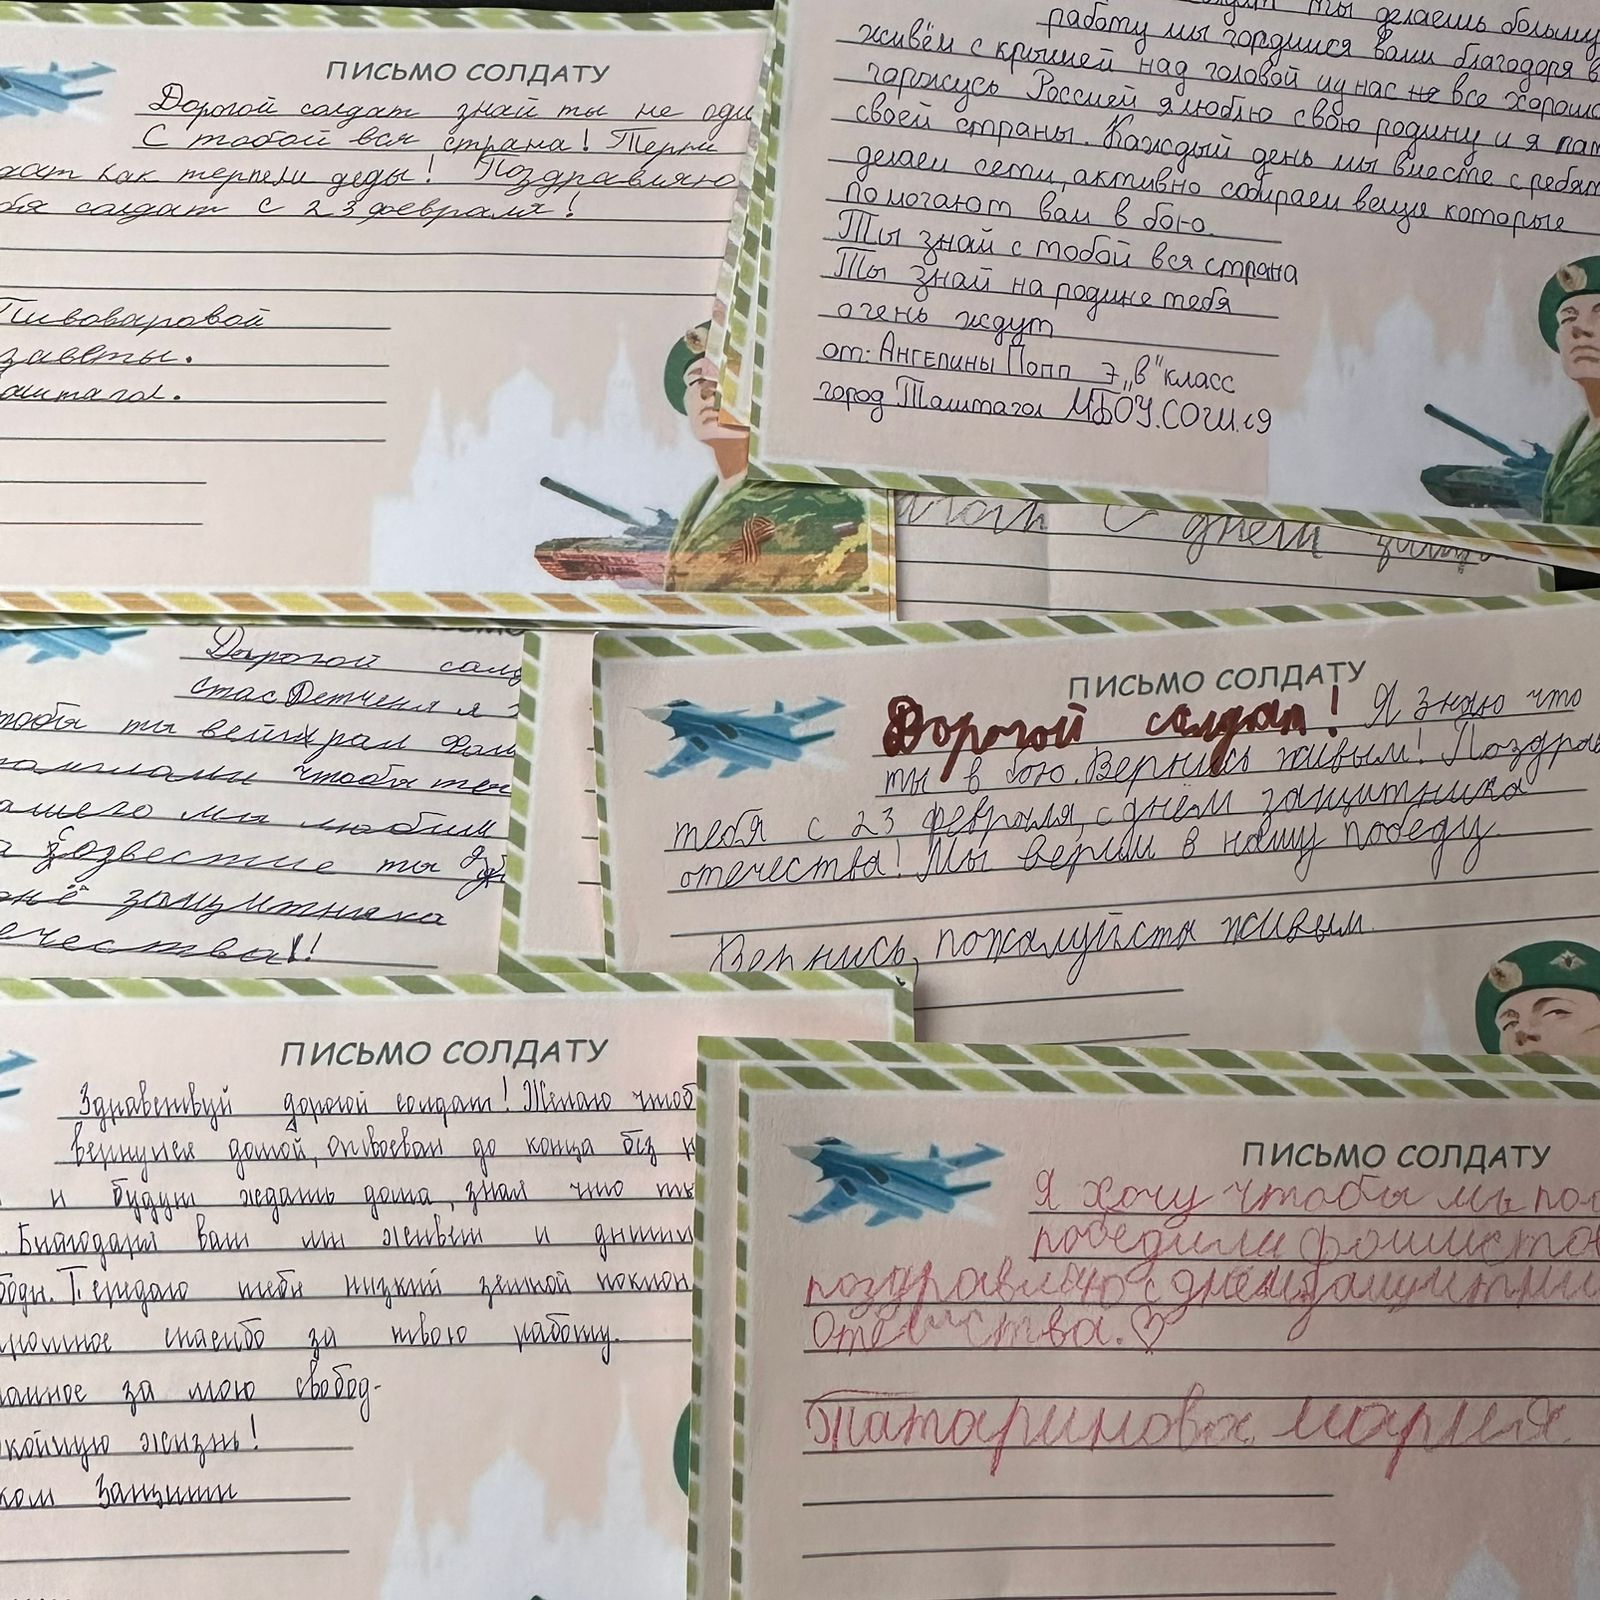 ПИСЬМО СОЛДАТУ
Дорогой солдат знай ты не оди
С тобой вся страна! Терпи
дат как терпели деды! Поздравляю
бя солдат с 23 февраля!
Пивоваровой
заветы.
аштагол.
ты делаешь большую
работу мы гордимся вами благодоря в
живём с крышей над головой и у нас не все хорошо
горжусь Россией я люблю свою родину и я пат
своей страны. Каждый день мы вместе с ребят
делаем сети, активно собираем вещи которые
помогают вам в бою.
Ты знай с тобой вся страна
Ты знай на родине тебя
очень ждут
от: Ангелины Попп 7 „в" класс
город Таштагол МБОУ.СОШ.9
С днём защи
Дорогой солд
стас Детченя я
чтобы ты
чтобы
ашего мы любим
ты
онё защитника
ечества!!
ПИСЬМО СОЛДАТУ
Дорогой солдат! Я знаю что
ты в бою. Вернись живым! Поздрав
тебя с 23 февраля, с днём защитника
отечества! Мы верим в нашу победу.
Вернись, пожалуйста живым.
ПИСЬМО СОЛДАТУ
Здравствуй дорогой солдат! Желаю чтоб
вернулся домой, отвоевал до конца без
и будут ждать дома, зная что ты
. Благодаря вам мы живем и дышим
боды. Передаю тебе низкий земной поклон
ромное спасибо за твою работу.
лавное за мою свобод-
койную жизнь!
ком защити
ПИСЬМО СОЛДАТУ
Я хочу чтобы мы поб
победили фошистов
поздравляю с днём защитни
Отечества.♡
Татаринова мария